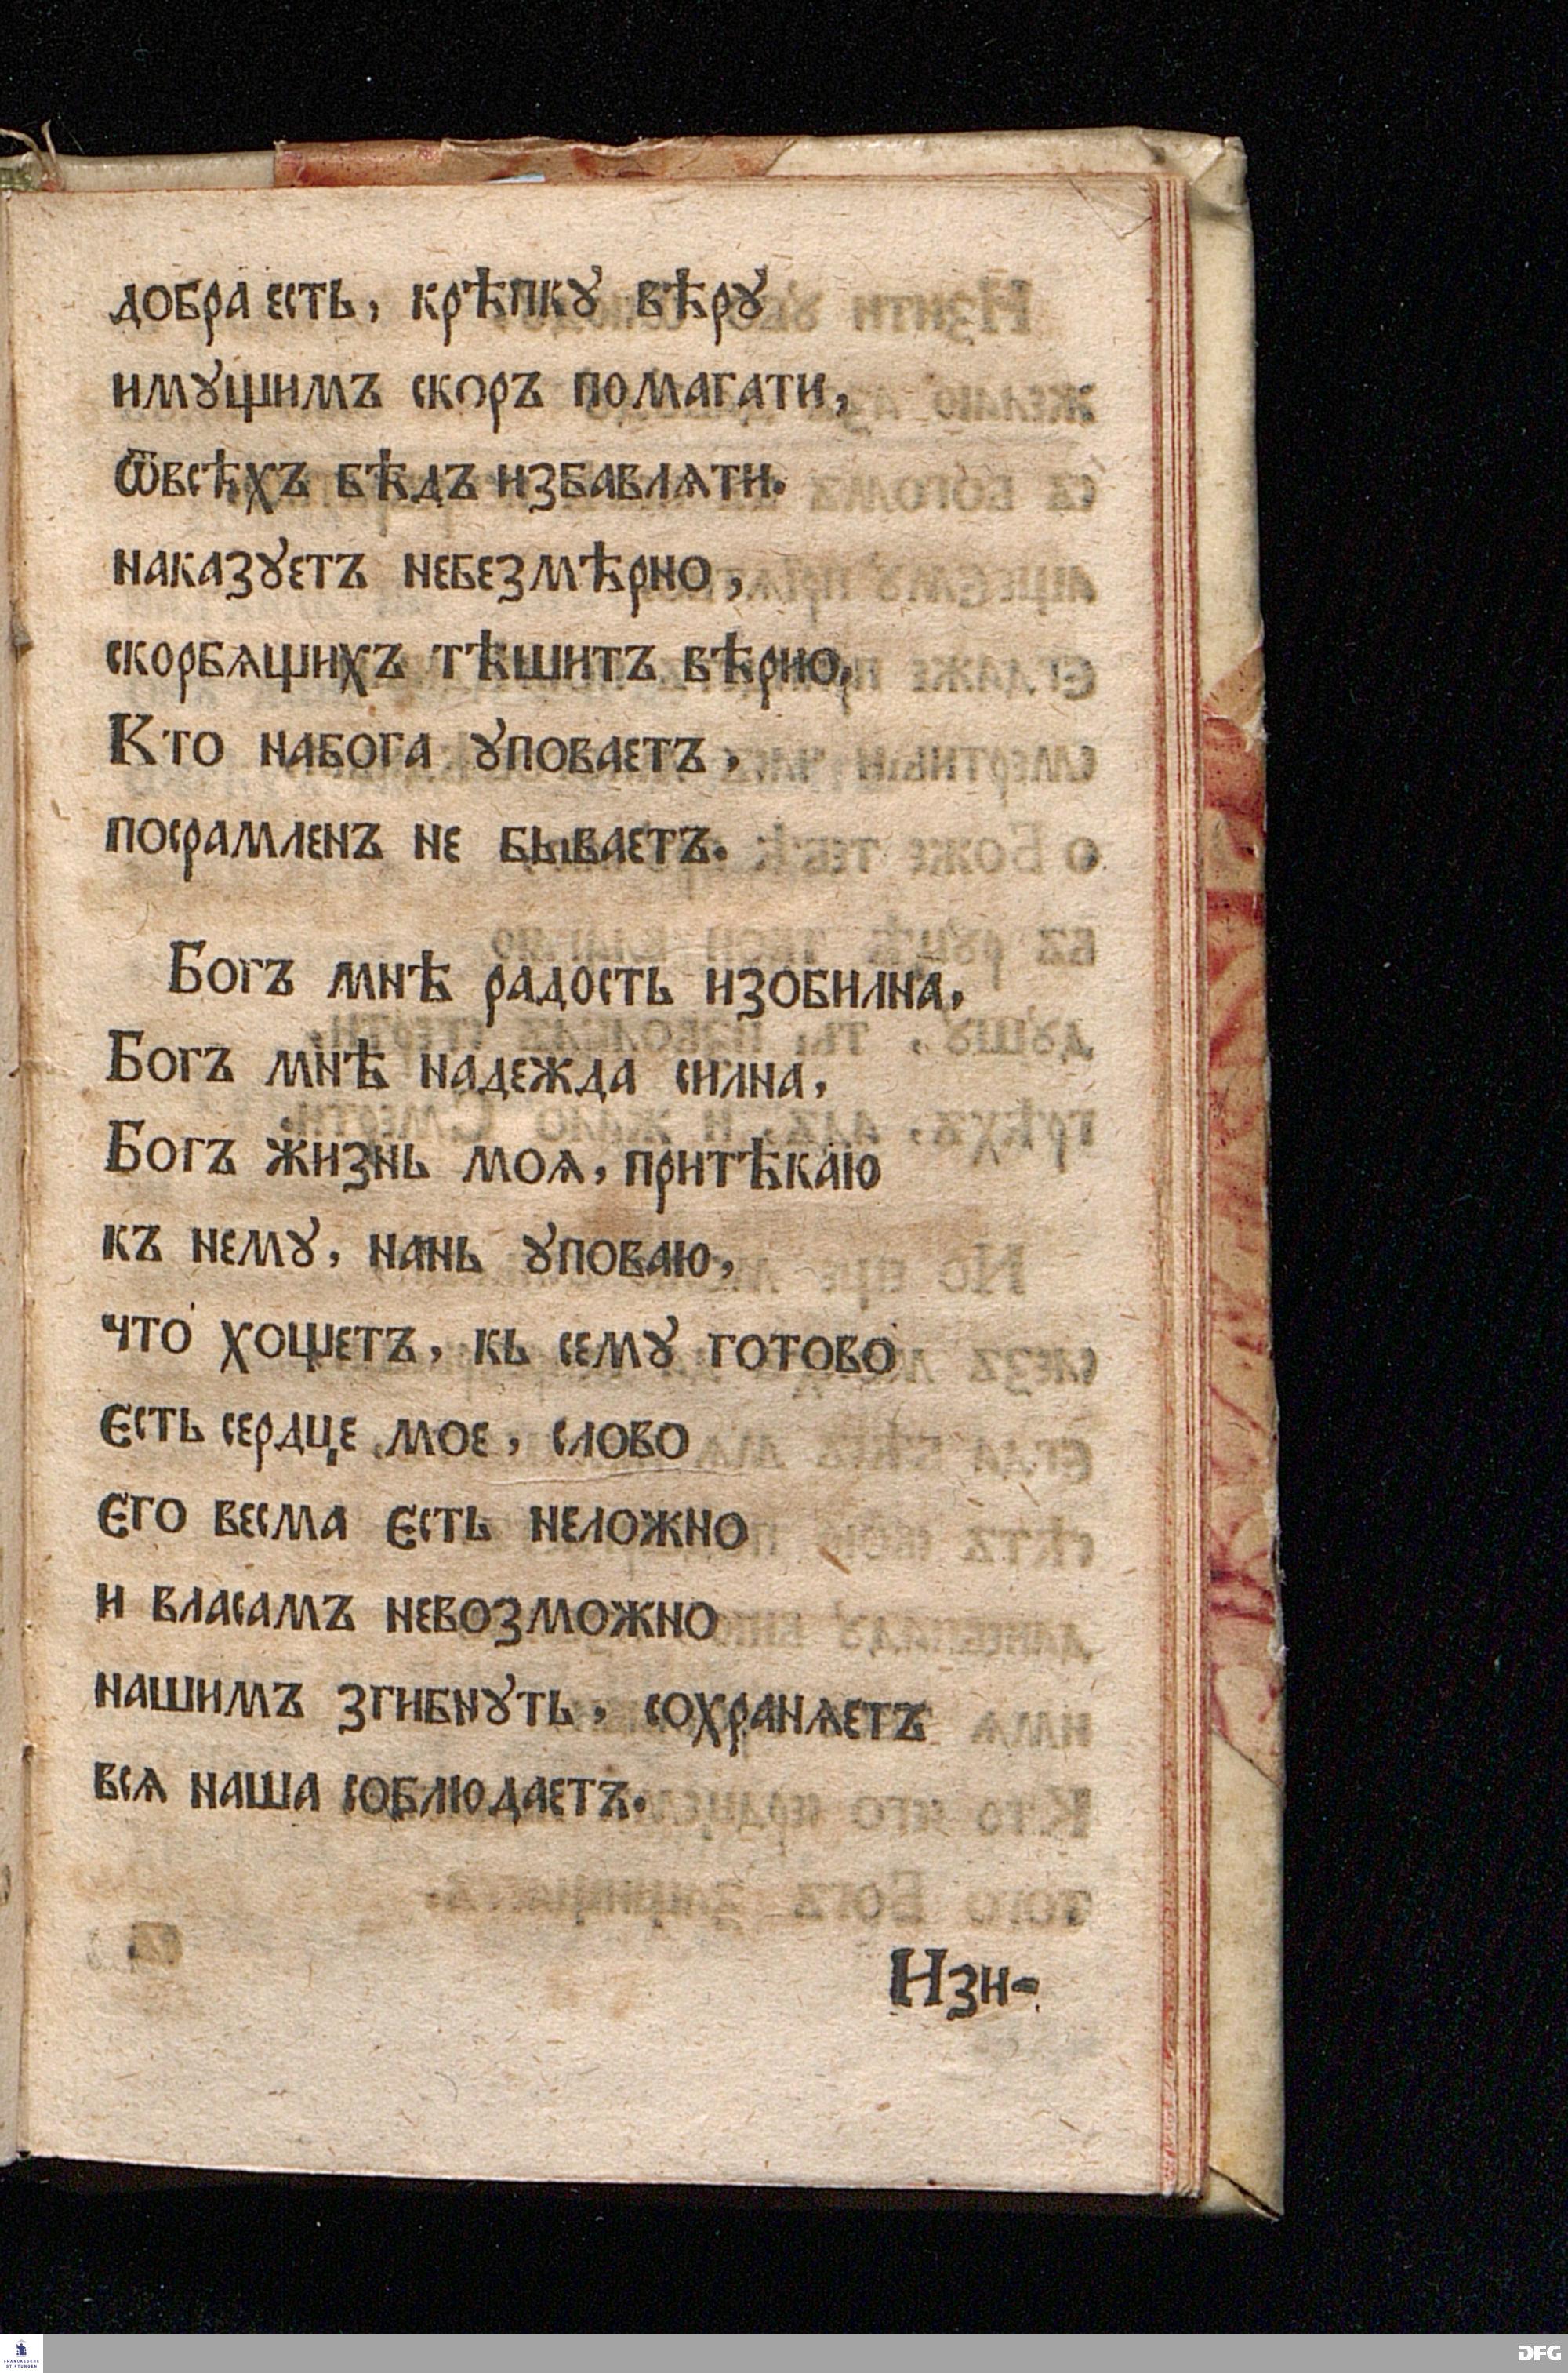 добра есть, крѣпкꙋ вѣрꙋ
имꙋщимъ скоръ помагати,
ѿвсѣхъ бѣдъ избавлѧти.
наказꙋетъ небезмѣрно,
скорбѧщихъ тѣшитъ вѣрно,
Кто набога ꙋповаетъ,
посрамленъ не бываетъ.
Богъ мнѣ радость изобилна,
Богъ мнѣ надежда силна,
Богъ жизнь моѧ, притѣкаю
къ немꙋ, нань ꙋповаю,
что хощетъ, кь семꙋ готово
Єсть сердце мое, слово
Єго весма Єсть неложно
и власамъ невозможно
нашимъ згибнꙋть, сохранѧетъ
всѧ наша соблюдаетъ.
Изи-
FRANCKESCHE
STIFTUNGEN
DFG